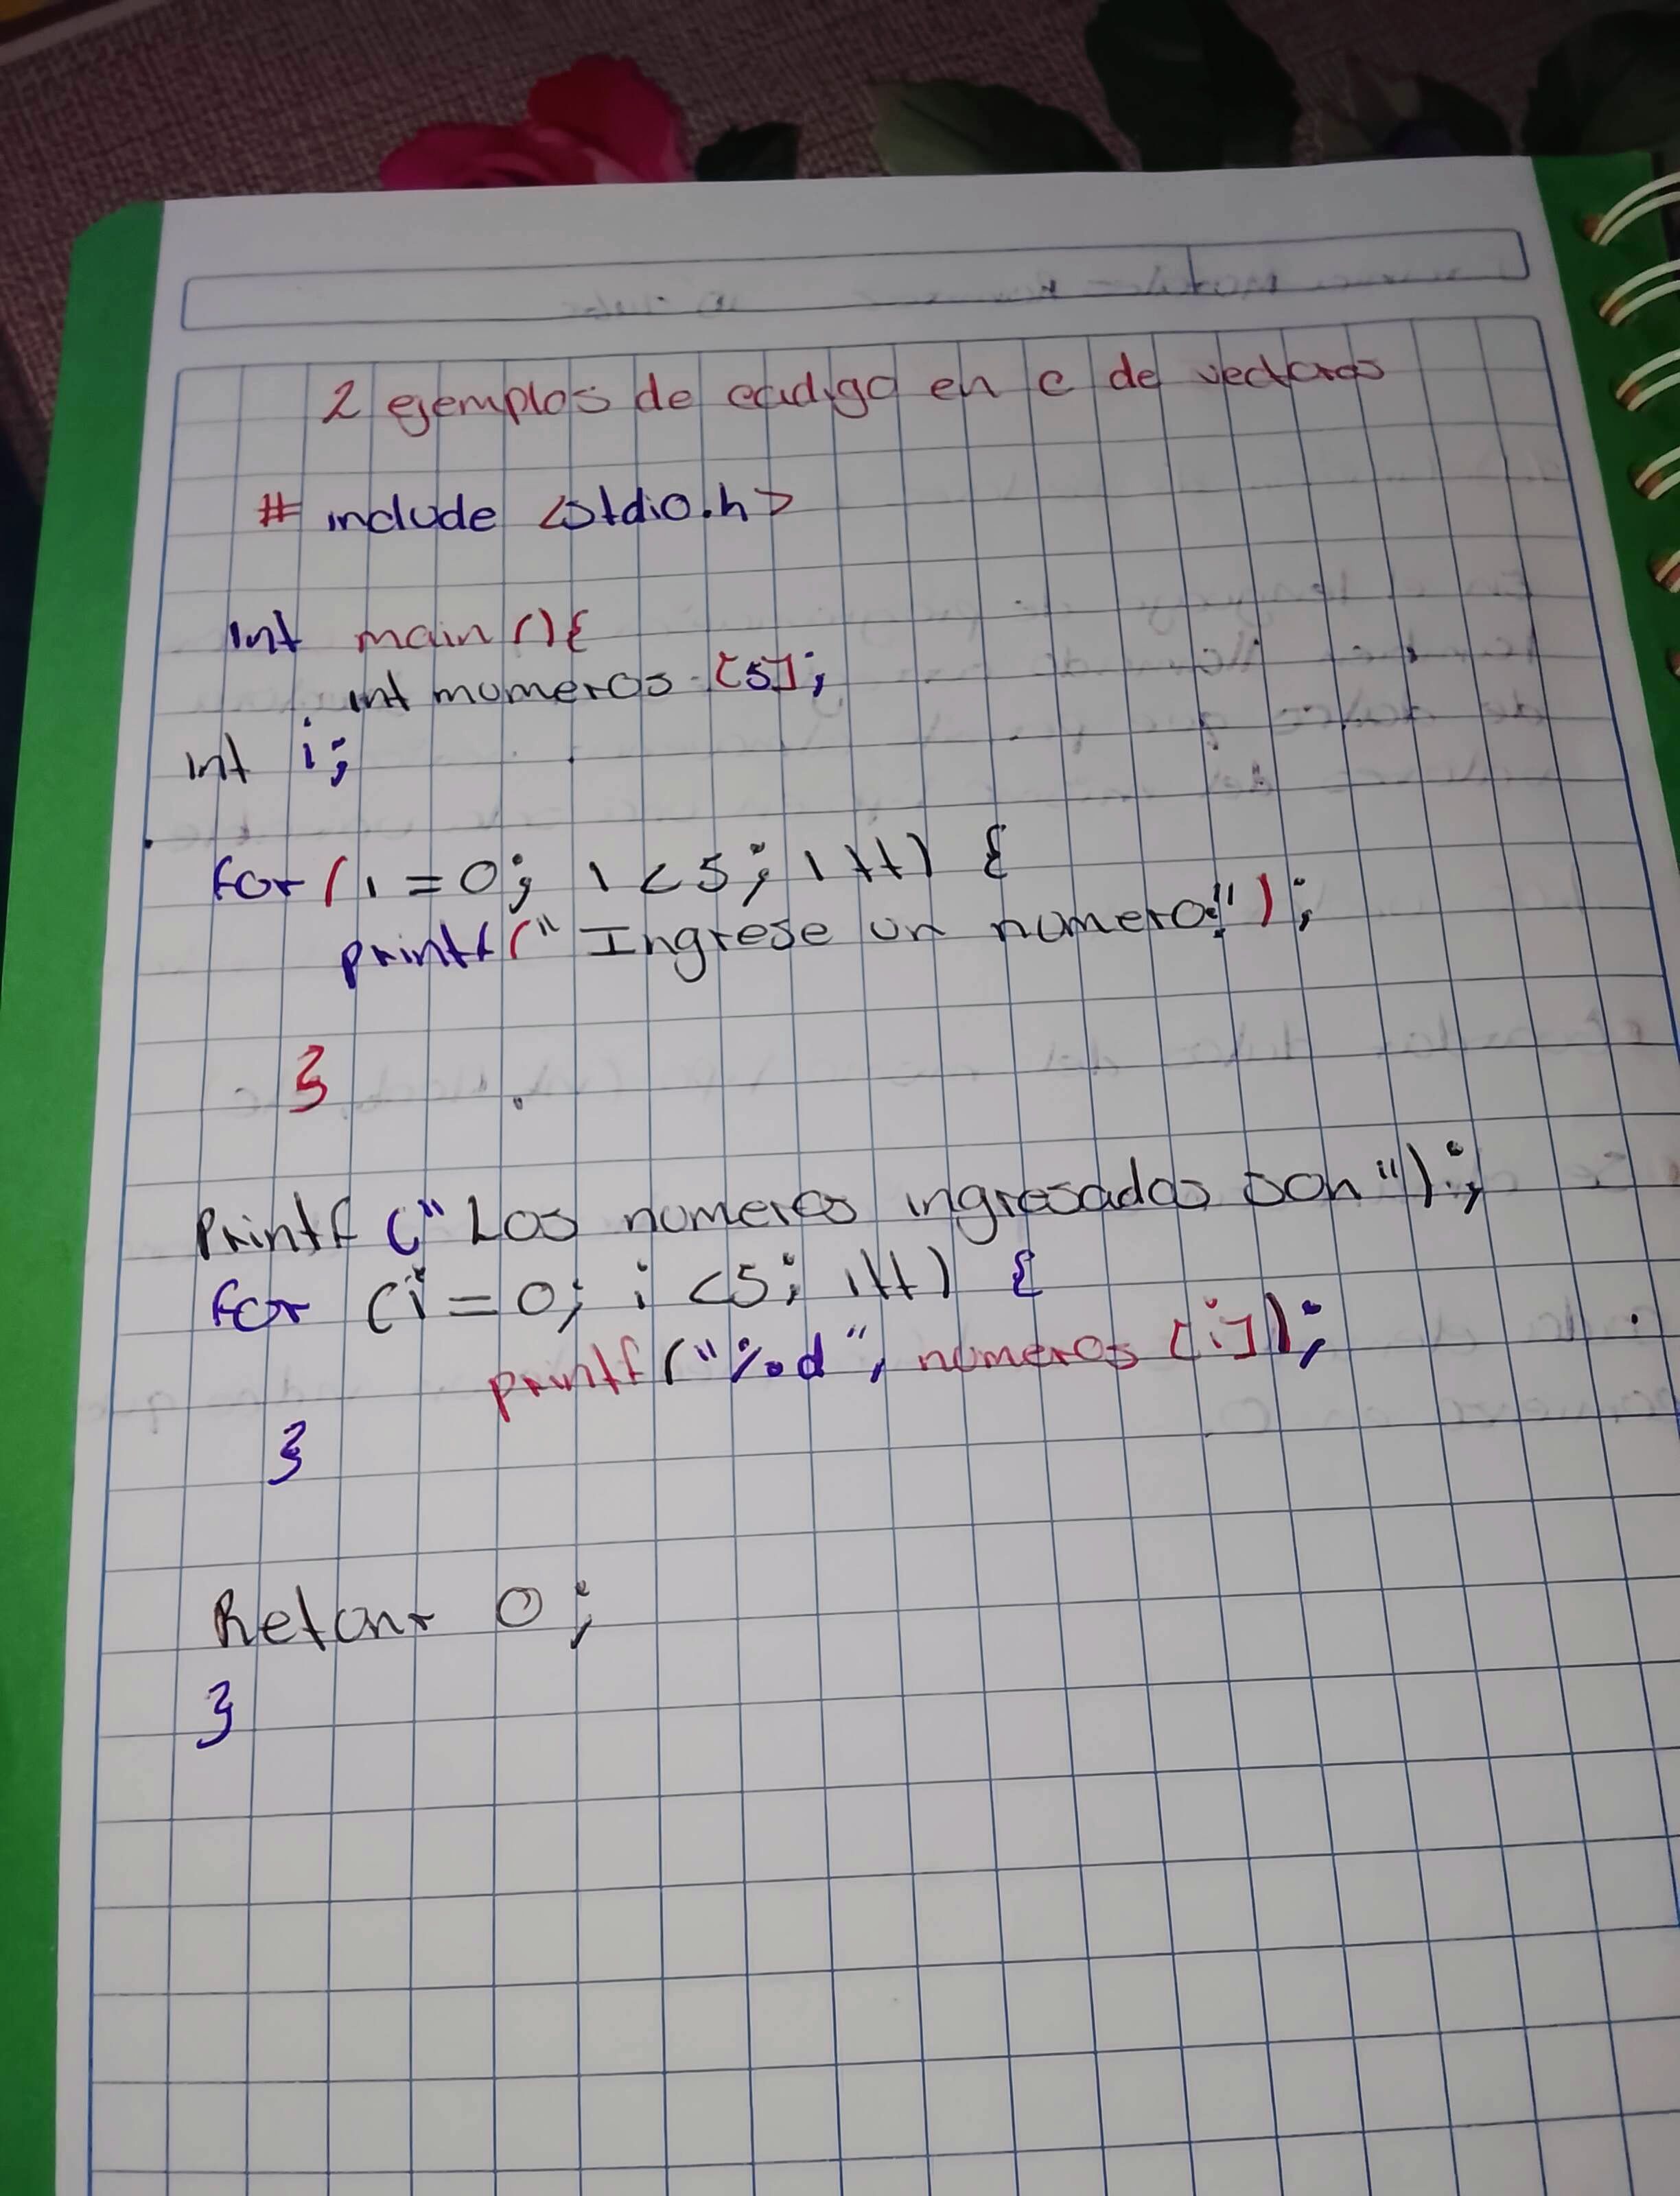 2 ejemplos de codigo en c de vectores
# include <stdio.h>
int main () {
int numeros [5];
int i;
for ( i = 0; i < 5; i++) {
printf (" Ingrese un numero:");
}
Printf (" Los numeros ingresados son");
for (i = 0; i < 5; i++) {
printf ("%d", numeros [i]);
}
Retonr 0;
}